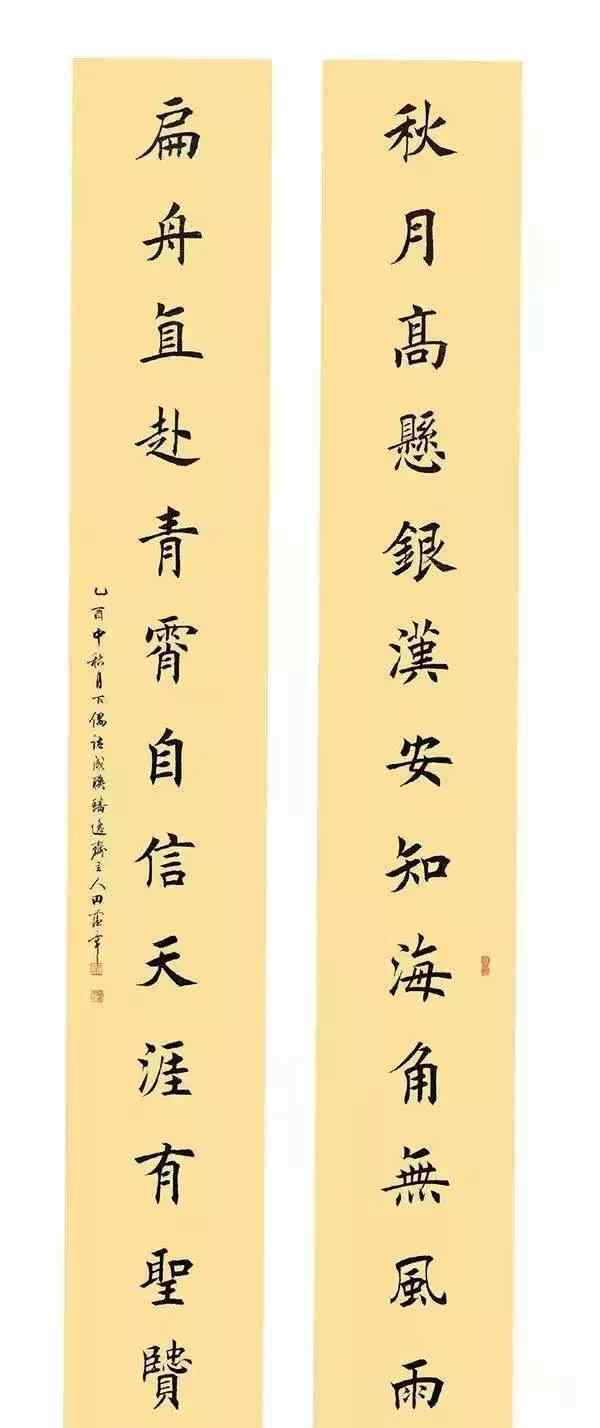 秋月髙懸銀漢安知海角無風雨
扁舟直赴青霄自信天涯有聖贒
乙酉中秋月下偶詠成聯齋主人田蘊章